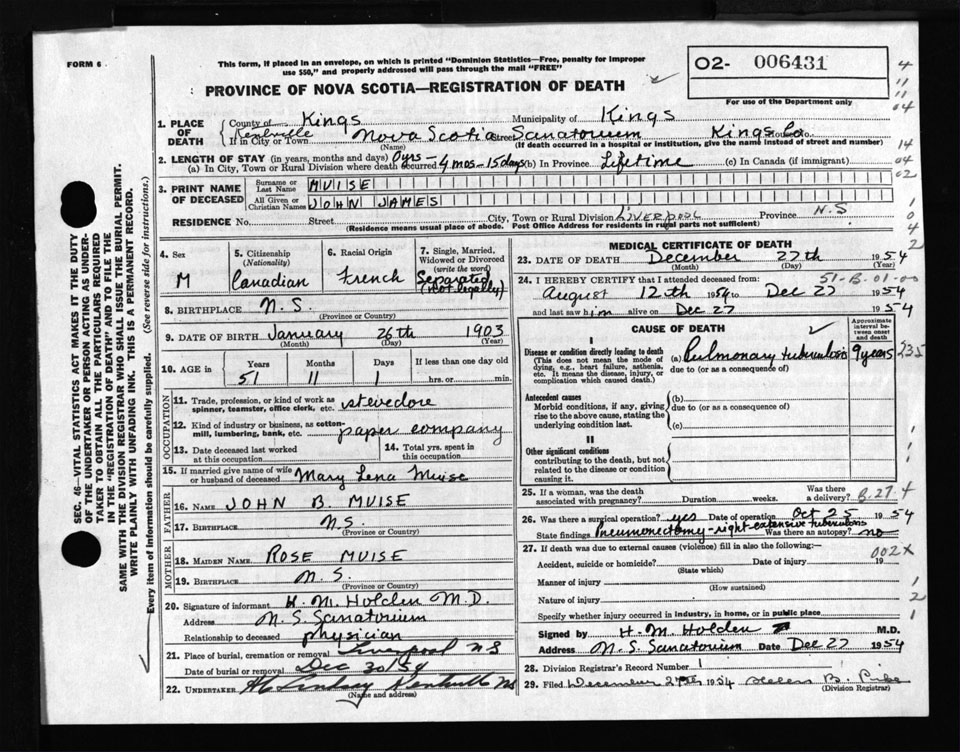 FORM 6
This form, if placed in an envelope, on which is printed "Dominion Statistics—Free, penalty for improper
use $50," and properly addressed will pass through the mail "FREE"
O2- 006431
For use of the Department only
PROVINCE OF NOVA SCOTIA—REGISTRATION OF DEATH
1. PLACE OF DEATH
County of Kings Municipality of Kings
If in City, Town or Kentville Nova Scotia Street Sanatorium Kings Co No.
(Name) (If death occurred in a hospital or institution, give the name instead of street and number)
2. LENGTH OF STAY (in years, months and days) 0yrs - 4 mos - 15 days
(a) In City, Town or Rural Division where death occurred (b) In Province Lifetime (c) In Canada (if immigrant)
3. PRINT NAME OF DECEASED
Surname or Last Name MUISE
All Given or Christian Names JOHN JAMES
RESIDENCE No. Street City, Town or Rural Division LIVERPOOL Province N.S
(Residence means usual place of abode. Post Office Address for residents in rural parts not sufficient)
4. Sex M
5. Citizenship (Nationality) Canadian
6. Racial Origin French
7. Single, Married, Widowed or Divorced (write the word) Separated (not legally)
8. BIRTHPLACE N.S.
(Province or Country)
9. DATE OF BIRTH January 26th 1903
(Month) (Day) (Year)
10. AGE in Years Months Days If less than one day old
51 11 1 hrs. or min.
OCCUPATION
11. Trade, profession, or kind of work as spinner, teamster, office clerk, etc. stevedore
12. Kind of industry or business, as cotton-mill, lumbering, bank, etc. paper company
13. Date deceased last worked at this occupation
14. Total yrs. spent in this occupation
15. If married give name of wife or husband of deceased Mary Lena Muise
FATHER
16. NAME JOHN B. MUISE
17. BIRTHPLACE N.S.
(Province or Country)
MOTHER
18. MAIDEN NAME ROSE MUISE
19. BIRTHPLACE N.S.
(Province or Country)
20. Signature of informant H. M. Holden M.D.
Address N.S. Sanatorium
Relationship to deceased physician
21. Place of burial, cremation or removal Liverpool NS
Date of burial or removal Dec 30/54
22. UNDERTAKER Lindsay Kentville NS
(Name and address)
MEDICAL CERTIFICATE OF DEATH
23. DATE OF DEATH December 27th 1954
(Month) (Day) (Year)
51-B.01-00
24. I HEREBY CERTIFY that I attended deceased from:
August 12th 1954 to Dec 27 1954
and last saw him alive on Dec 27 1954
CAUSE OF DEATH
Approximate interval between onset and death
I
Disease or condition directly leading to death
(This does not mean the mode of dying, e.g., heart failure, asthenia, etc. It means the disease, injury, or complication which caused death.)
(a) Pulmonary tuberculosis 9 years
due to (or as a consequence of)
Antecedent causes
Morbid conditions, if any, giving rise to the above cause, stating the underlying condition last.
(b)
due to (or as a consequence of)
(c)
II
Other significant conditions
contributing to the death, but not related to the disease or condition causing it.
25. If a woman, was the death associated with pregnancy? Duration weeks. Was there a delivery? B.27.
26. Was there a surgical operation? yes Date of operation Oct 25 1954
State findings Pneumonectomy-right-extensive tuberculosis Was there an autopsy? no
27. If death was due to external causes (violence) fill in also the following:—
002X
Accident, suicide or homicide? Date of injury 19
(State which)
Manner of injury
(How sustained)
Nature of injury
Specify whether injury occurred in industry, in home, or in public place
Signed by H. M. Holden M.D.
Address N.S. Sanatorium Date Dec 27 1954
28. Division Registrar's Record Number 1
29. Filed December 27th 1954 Helen B.
(Division Registrar)
SEC. 46—VITAL STATISTICS ACT MAKES IT THE DUTY
OF THE UNDERTAKER OR PERSON ACTING AS UNDER-
TAKER TO OBTAIN ALL THE PARTICULARS REQUIRED
IN THE "REGISTRATION OF DEATH" AND TO FILE THE
SAME WITH THE DIVISION REGISTRAR WHO SHALL ISSUE THE BURIAL PERMIT.
WRITE PLAINLY WITH UNFADING INK. THIS IS A PERMANENT RECORD.
Every item of information should be carefully supplied. (See reverse side for instructions.)